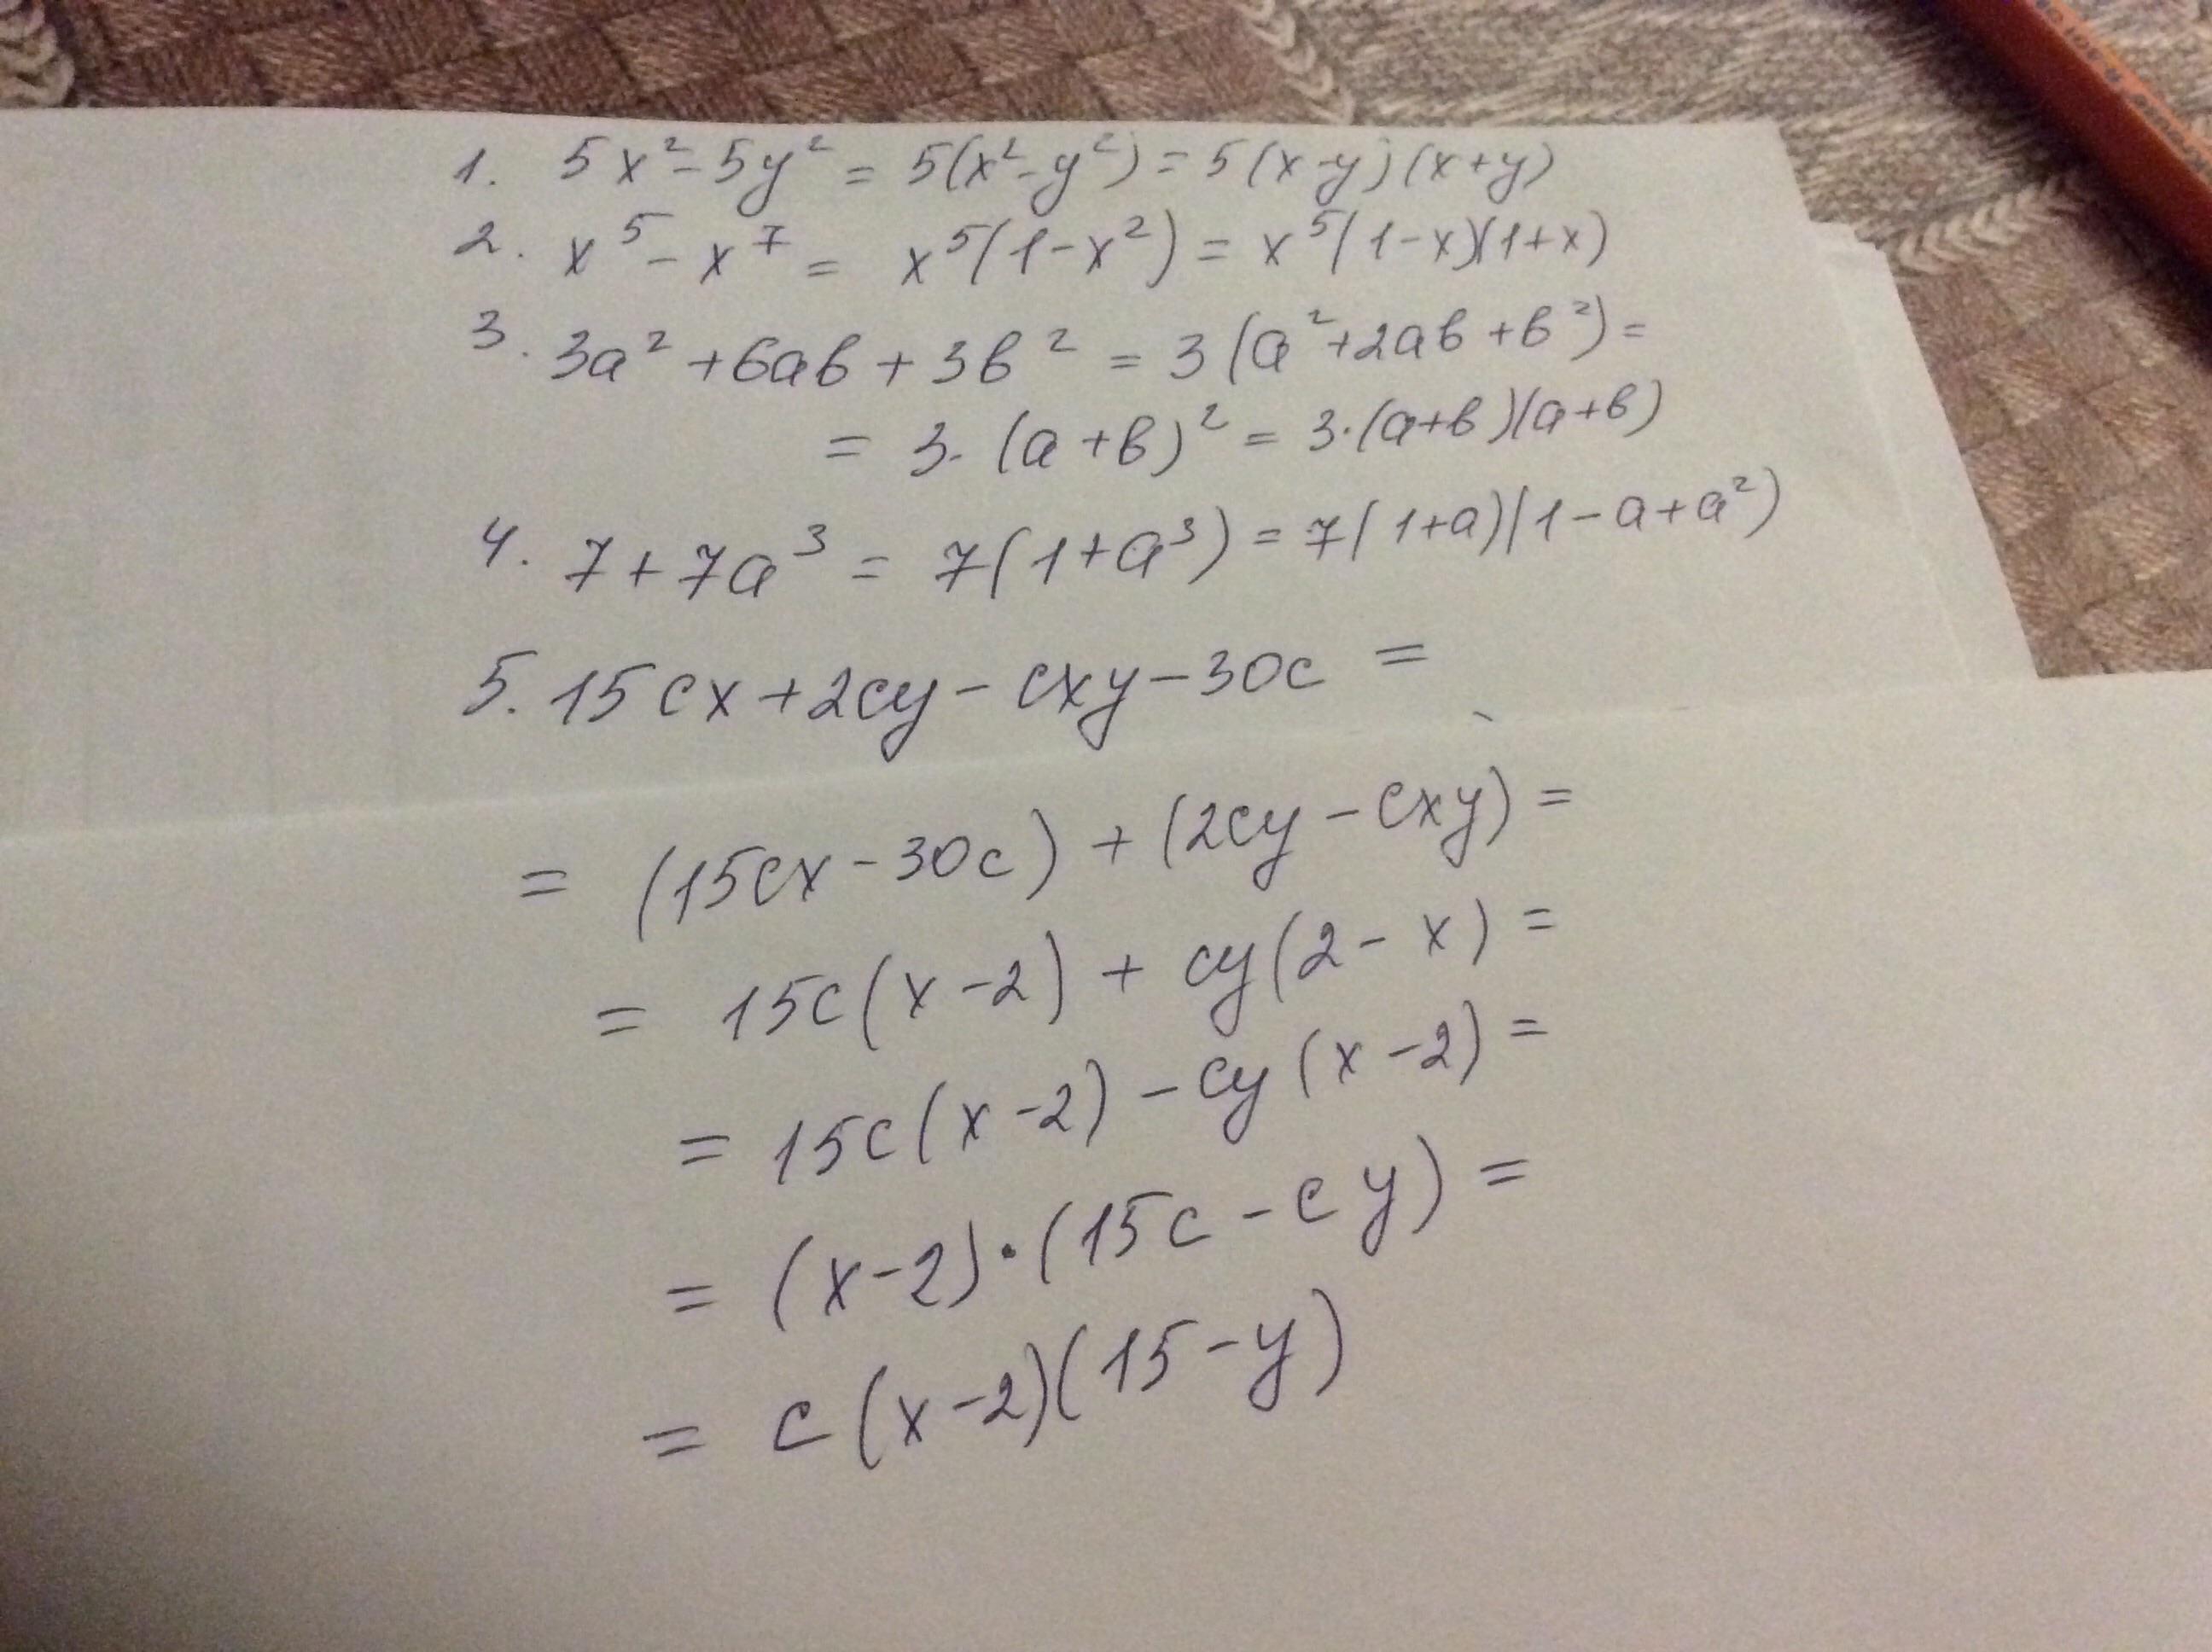 1. 5x² - 5y² = 5(x² - y²) = 5(x-y)(x+y)
2. x⁵ - x⁷ = x⁵(1-x²) = x⁵(1-x)(1+x)
3. 3a² + 6aв + 3в² = 3(a² + 2aв + в²) =
= 3·(a+в)² = 3·(a+в)(a+в)
4. 7 + 7a³ = 7(1+a³) = 7(1+a)(1-a+a²)
5. 15cx + 2cy - cxy - 30c =
= (15cx - 30c) + (2cy - cxy) =
= 15c(x-2) + cy(2-x) =
= 15c(x-2) - cy(x-2) =
= (x-2)·(15c - cy) =
= c(x-2)(15-y)